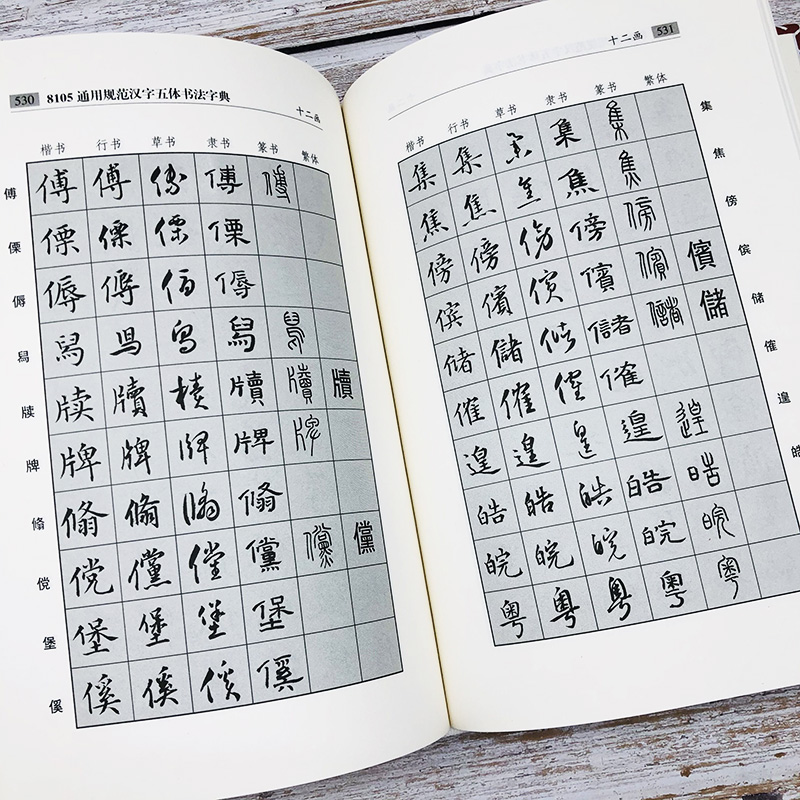 530 8105 通用规范汉字五体书法字典
十二画
楷书 行书 草书 隶书 篆书 繁体
傅 傅 傅 傅 傅 傅
傈 傈 傈 傈 傈
傉 傉 傉 傉 傉
舄 舄 舄 舄 舄 舄
牍 牍 牘 牍 牘 牘 牘
牌 牌 牌 牌 牌 牌
翛 翛 翛 翛 翛
傥 傥 儻 傥 儻 儻 儻
堡 堡 堡 堡 堡
傒 傒 傒 傒 傒
十二画 531
楷书 行书 草书 隶书 篆书 繁体
集 集 集 集 集 集
焦 焦 焦 焦 焦 焦
傍 傍 傍 傍 傍 傍
傧 儐 傧 儐 儐 儐 傧
储 儲 储 儲 儲 儲 储
傕 傕 傕 傕 傕
遑 遑 遑 遑 遑 遑
皓 皓 皓 皓 皓 皓
皖 皖 皖 皖 皖
粤 粤 粤 粤 粤